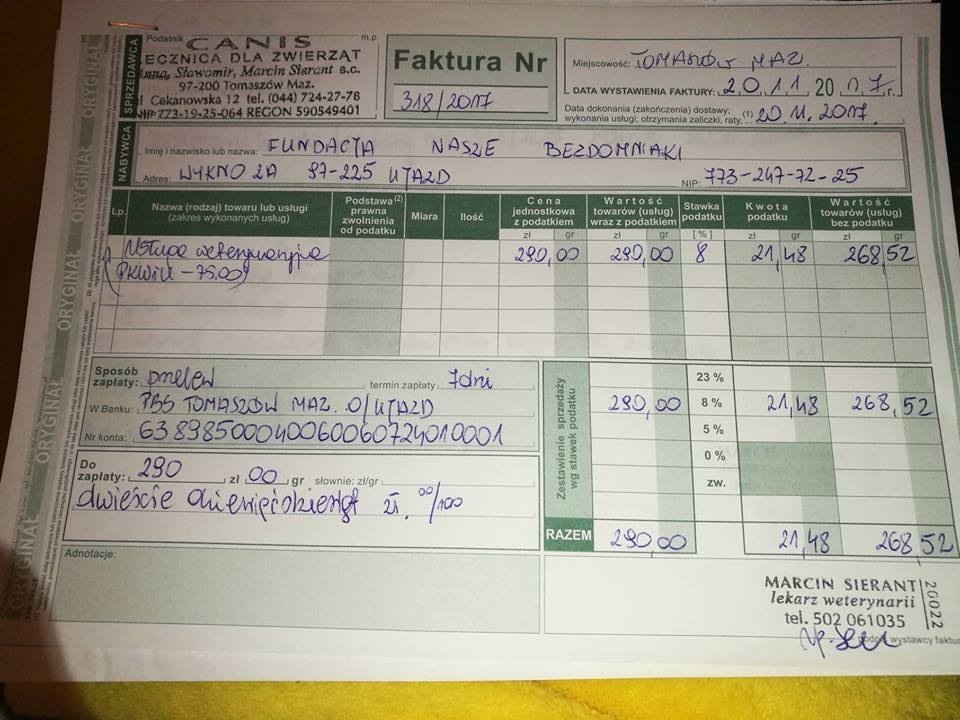 Podatnik
m.p.
CANIS
LECZNICA DLA ZWIERZĄT
Sławomir, Marcin Sierant s.c.
97-200 Tomaszów Maz.
Cekanowska 12 tel. (044) 724-27-78
NIP 773-19-25-064 REGON 590549401
SPRZEDAWCA
Faktura Nr
318/2017
Miejscowość: TOMASZÓW MAZ.
DATA WYSTAWIENIA FAKTURY: 20.11.2017 r.
Data dokonania (zakończenia) dostawy,
wykonania usługi; otrzymania zaliczki, raty, ... (1) 20.11.2017.
NABYWCA
Imię i nazwisko lub nazwa: FUNDACJA NASZE BEZDOMNIAKI
Adres: WYKNO 2A 97-225 UJAZD NIP: 773-247-72-25
Lp. Nazwa (rodzaj) towaru lub usługi (zakres wykonanych usług) Podstawa (2) prawna zwolnienia od podatku Miara Ilość Cena jednostkowa z podatkiem Wartość towarów (usług) wraz z podatkiem Stawka podatku Kwota podatku Wartość towarów (usług) bez podatku
zł gr zł gr [%] zł gr zł gr
Usługa weterynaryjna 290,00 290,00 8 21,48 268,52
(PKWiU - 75.00)
Sposób zapłaty: przelew termin zapłaty 7dni
W Banku: PBS TOMASZÓW MAZ. O/UJAZD
Nr konta: 63898500040060060724010001
Do zapłaty: 290 zł 00 gr słownie: zł/gr
dwieście dziewięćdziesiąt zł. 00/100
Adnotacje:
Zestawienie sprzedaży wg stawek podatku
23 %
290,00 8 % 21,48 268,52
5 %
0 %
zw.
RAZEM 290,00 21,48 268,52
MARCIN SIERANT
lekarz weterynarii
tel. 502 061035
20022
podpis wystawcy faktur
ORYGINAŁ ORYGINAŁ ORYGINAŁ ORYGINAŁ ORYGINAŁ